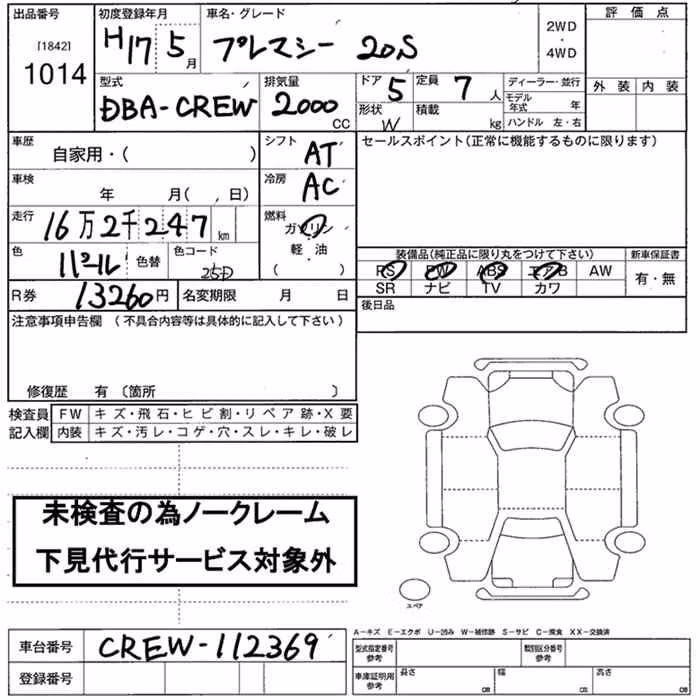 出品番号 初度登録年月 車名・グレード 評価点
[1842] H17 5月 プレマシー 20S 2WD・4WD
1014 型式 排気量 ドア 5 定員 7人 ディーラー・並行 外装 内装
DBA-CREW 2000cc 形状 W 積載 kg モデル年式 年
ハンドル 左・右
車歴 シフト セールスポイント(正常に機能するものに限ります)
自家用・( ) AT
車検 冷房
年 月( 、日) AC
走行 燃料
16万2千247km ガソリン
色 色替 色コード 軽・油
パール 25D ( ・ )
装備品(純正品に限り丸をつけて下さい) 新車保証書
PS PW ABS エアB AW 有・無
SR ナビ TV カワ
R券 13260円 名変期限 月 日 後日品
注意事項申告欄 (不具合内容等は具体的に記入して下さい)
修復歴 有 〔箇所 〕
検査員 FW キズ・飛石・ヒビ割・リペア跡・X要
記入欄 内装 キズ・汚レ・コゲ・穴・スレ・キレ・破レ
未検査の為ノークレーム
下見代行サービス対象外
スペア
A-キズ E-エクボ U-凹み W-補修跡 S-サビ C-腐食 XX-交換済
車台番号 CREW-112369 型式指定番号 参考 類別区分番号
登録番号 車庫証明用 参考 長さ cm 幅 cm 高さ cm